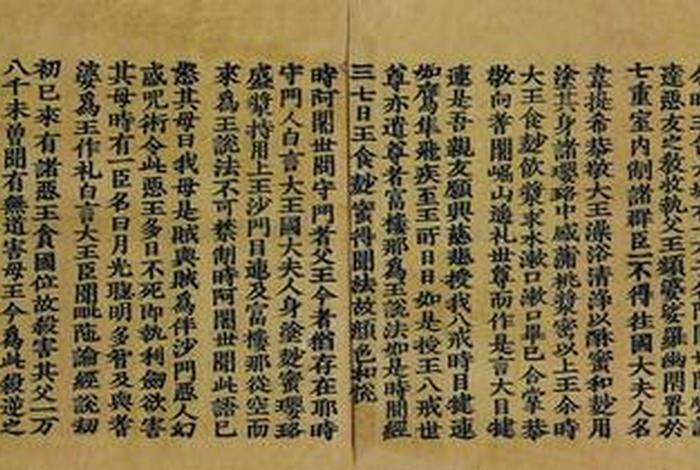 達惡友之教收執父王頻婆娑羅幽閉置於
七重室內制諸群臣一不得往國大夫人名
韋提希恭敬大王澡浴清淨以酥蜜和麨用
塗其身諸瓔珞中盛蒲桃漿密以上王尒時
大王食麨飲漿求水漱口漱口畢已合掌恭
敬向耆闍崛山遙礼世尊而作是言大目揵
連是吾親友願興慈悲授我八戒時目揵連
如鷹隼飛疾至王所日日如是授王八戒世
尊亦遣尊者富樓那為王說法如是時間經
三七日王食麨蜜得聞法故顏色和悅
時阿闍世問守門者父王今者猶存在耶時
守門人白言大王國大夫人身塗麨蜜瓔珞
盛漿持用上王沙門目連及富樓那從空而
來為王說法不可禁制時阿闍世聞此語已
怒其母曰我母是賊與賊為伴沙門惡人幻
惑呪術令此惡王多日不死即執利劍欲害
其母時有一臣名曰月光聰明多智及與耆
婆為王作礼白言大王臣聞毗陁論經說劫
初已來有諸惡王貪國位故殺害其父一万
八千未曾聞有無道害母王今為此殺逆之